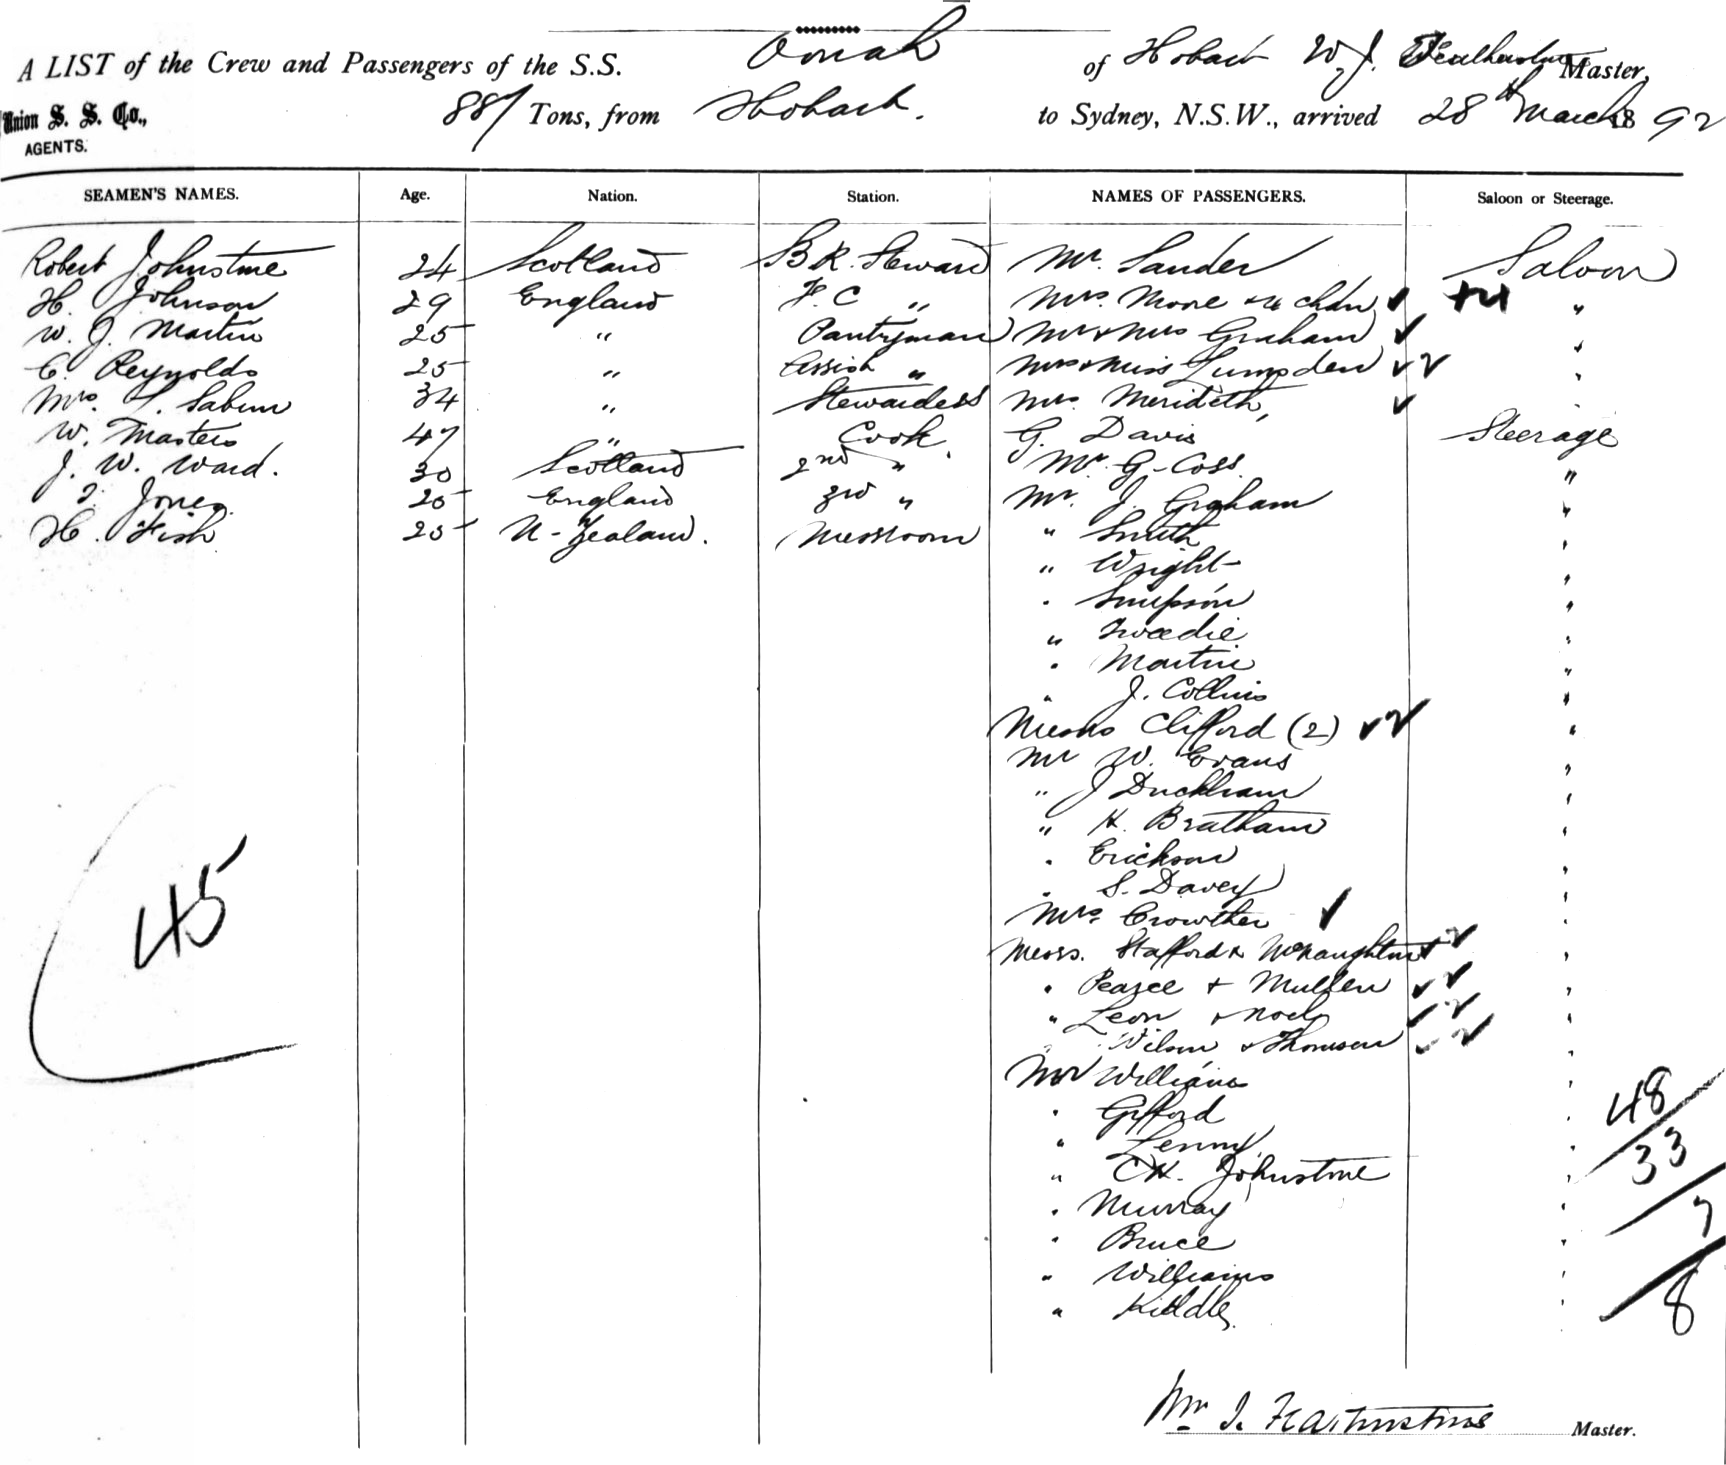 A LIST of the Crew and Passengers of the S.S. Oonah of Hobart W. J. Featherstone Master,
Union S. S. Co., 887 Tons, from Hobart. to Sydney, N.S.W., arrived 28th March 1892
AGENTS.
SEAMEN'S NAMES. Age. Nation. Station. NAMES OF PASSENGERS. Saloon or Steerage.
Robert Johnstone 24 Scotland B R. Steward Mr. Sander Saloon
H. Johnson 29 England F. C " Mrs. Moore + 4 chdn ✓ +4 "
W. J. Martin 25 " Pantryman Mr + Mrs Graham ✓ "
C. Reynolds 25 " Assist " Mrs + Miss Lumsden ✓ ✓ "
Mrs. L. Sabum 34 " Stewardess Mrs. Merideth, ✓ "
W. Masters 47 " Cook. G. Davis Steerage
J. W. Ward. 30 Scotland 2nd " Mr. G. Coss "
T. Jones. 25 England 3rd " Mr. J. Graham "
H. Fish 25 N-Zealand. Messroom " Smith "
" Wright "
" Simpson "
" Tweedie "
" Martin "
" J. Collins "
Messrs Clifford (2) ✓ ✓ "
Mr W. Evans "
" J Duckham "
" H. Bratham "
" Erickson "
" S. Davey "
Mrs. Crowther ✓ "
Messrs. Stafford & McNaughton ✓ ✓ "
" Pearce + Mullen ✓ ✓ "
" Leon + ✓ ✓ "
" Wilson & Thomson ✓ ✓ "
Mr Williams "
" Gifford "
" Lenny "
" C H. Johnstone "
" Murray "
" Bruce "
" Williams "
" Kiddle. "
45
48
33
7
8
Wm J. Featherstone Master.